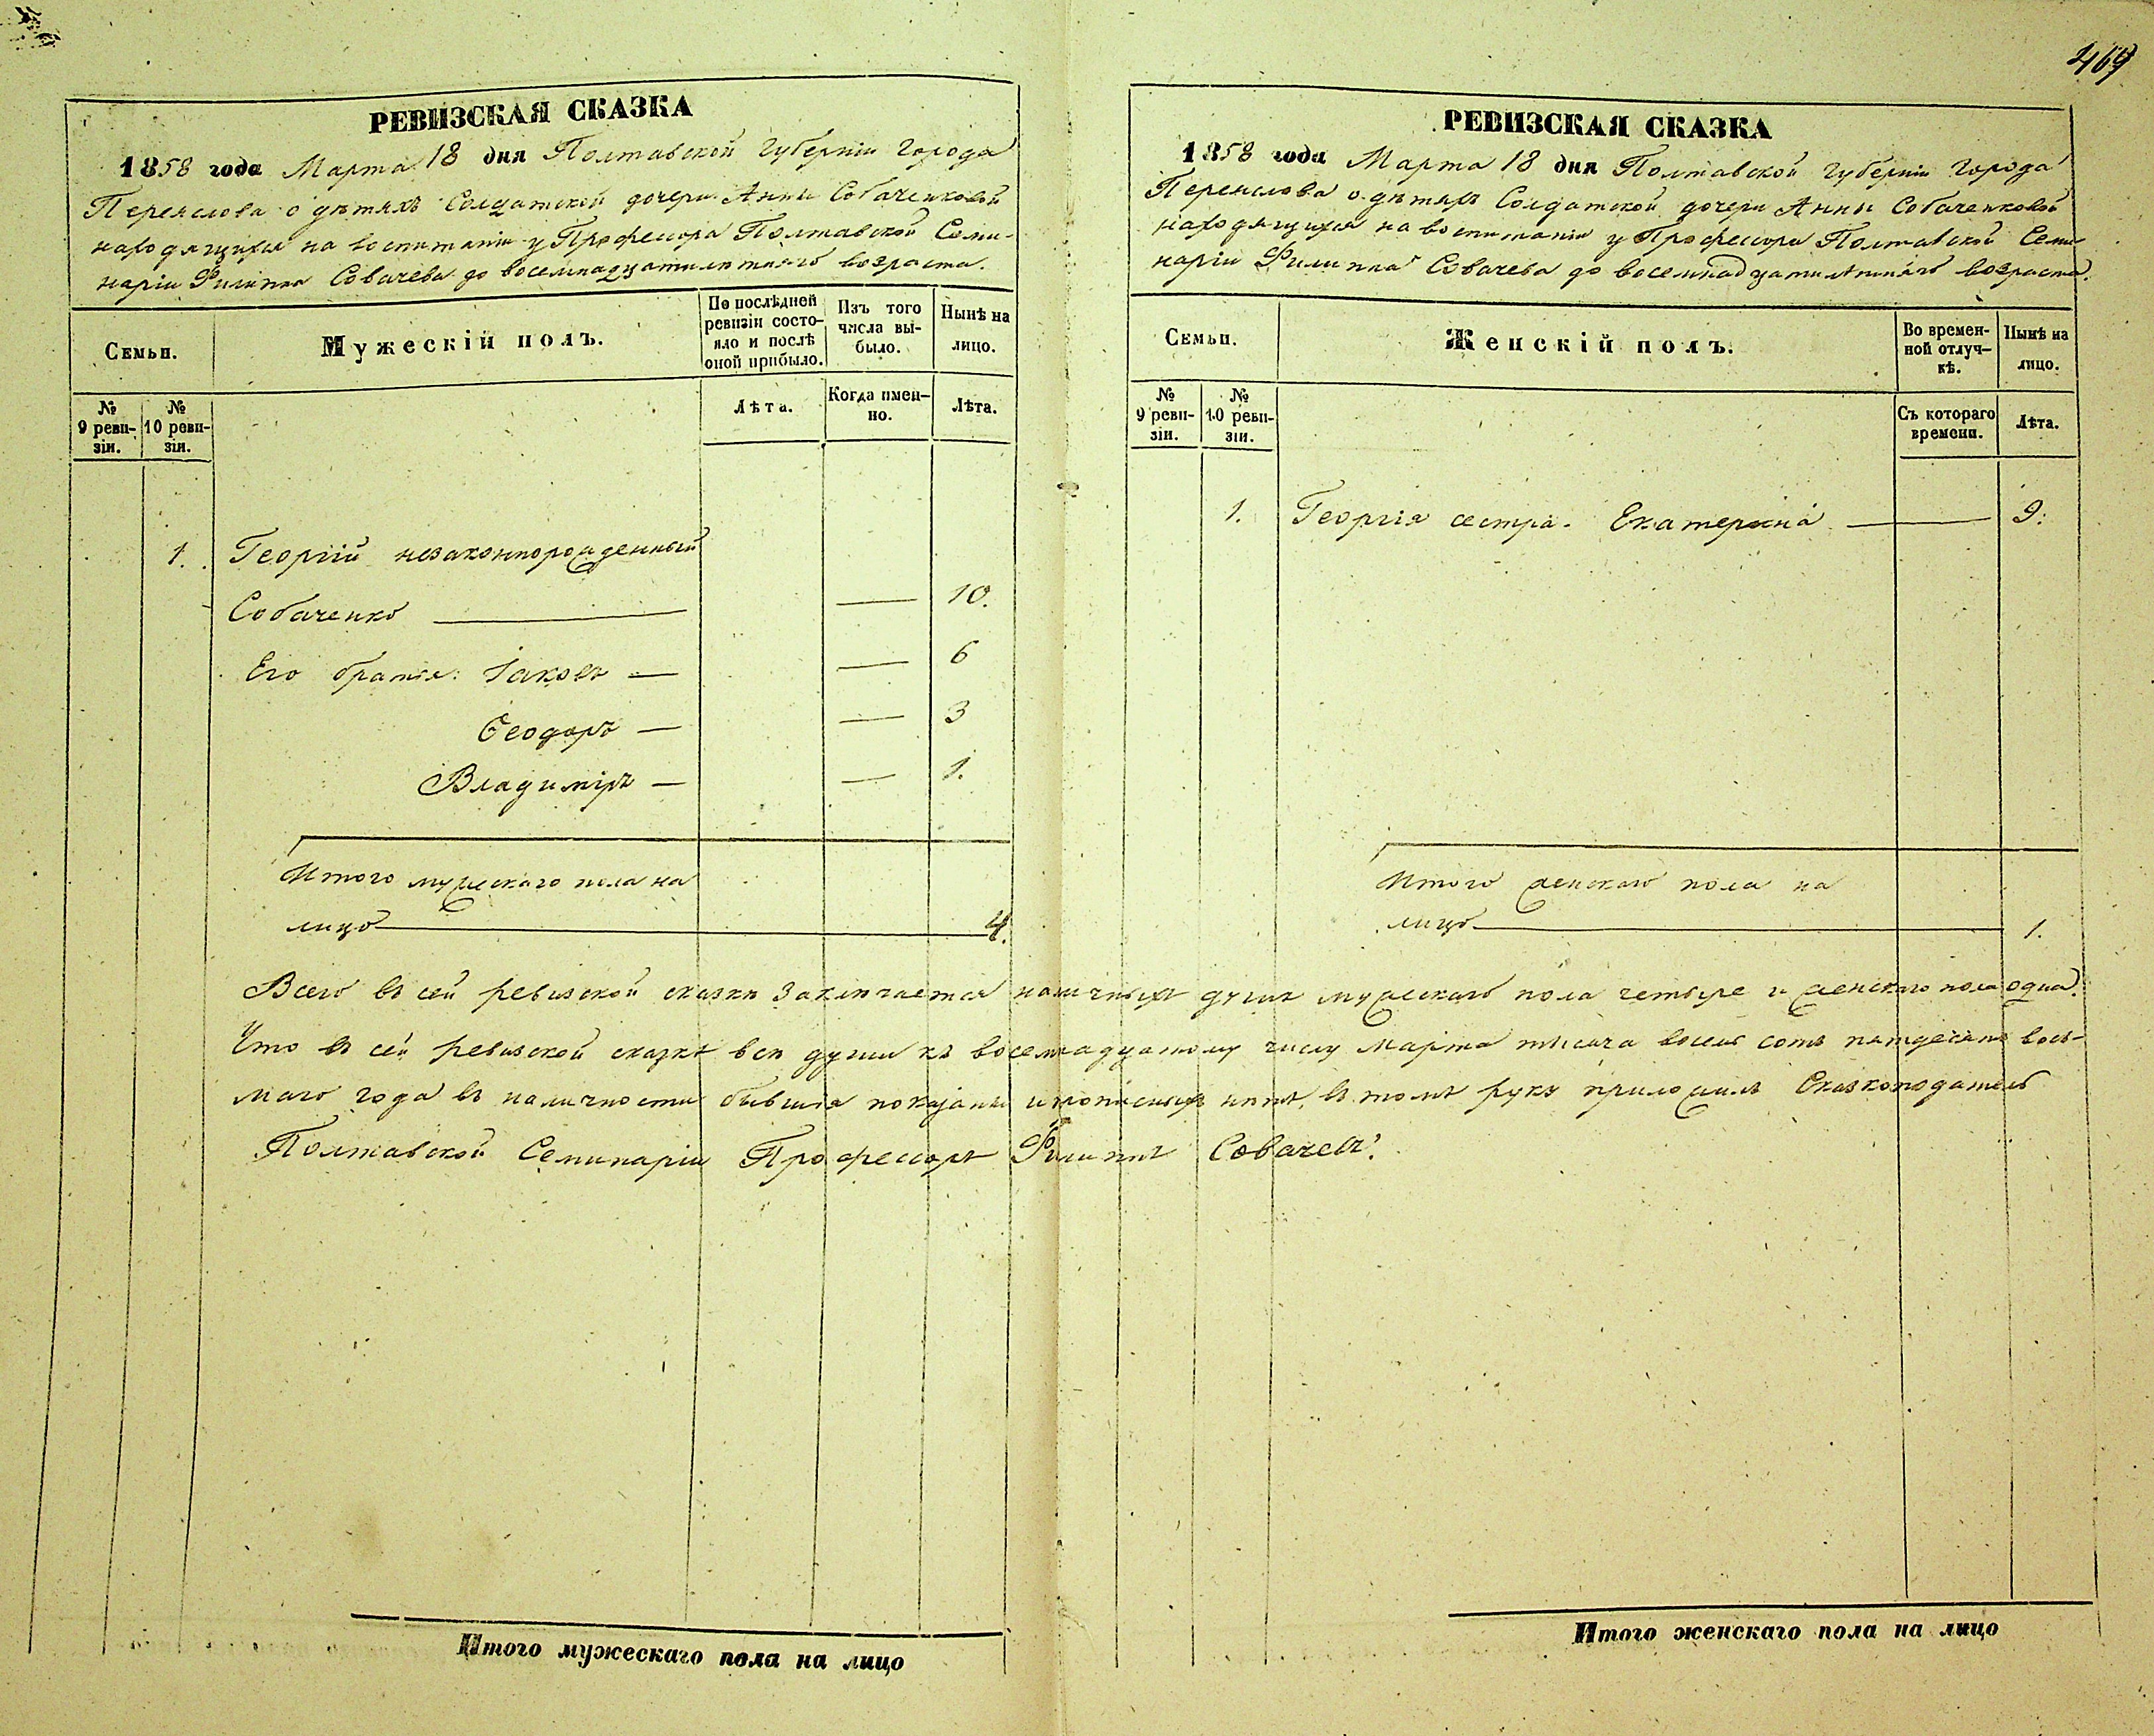 469
РЕВИЗСКАЯ СКАЗКА
1858 года Марта 18 дня Полтавской Губерніи Города
Переяслова о дѣтяхъ Солдатской дочери Анны Собаченковой
находящихся на воспитаніи у Профессора Полтавской Семи-
наріи Филиппа Совачева до восемнадцатилѣтняго возраста.
Семьи.
Мужескій полъ.
По послѣдней
ревизіи состо-
яло и послѣ
оной прибыло.
Изъ того
числа вы-
было.
Нынѣ на
лицо.
№
9 реви-
зіи.
№
10 реви-
зіи.
Лѣта.
Когда имен-
но.
Лѣта.
1. Георгій незаконнорожденный
Собаченко — — 10.
Его братья: Іаковъ — — 6
Ѳеодоръ — — 3
Владиміръ — — 1.
Итого мужескаго пола на
лицо — 4.
РЕВИЗСКАЯ СКАЗКА
1858 года Марта 18 дня Полтавской Губерніи Города
Переяслова о дѣтяхъ Солдатской дочери Анны Собаченковой
находящихся на воспитаніи у Профессора Полтавской Семи-
наріи Филиппа Совачева до восемнадцатилѣтняго возраста.
Семьи.
Женскій полъ.
Во времен-
ной отлуч-
кѣ.
Нынѣ на
лицо.
№
9 реви-
зіи.
№
10 реви-
зіи.
Съ котораго
времени.
Лѣта.
1. Георгія сестра Екатерина — 9.
Итого женскаго пола на
лицо — 1.
Всего въ сей ревизской сказкѣ заключается наличныхъ душъ мужескаго пола четыре и женскаго пола одна.
Что въ сей ревизской сказкѣ всѣ души къ восемнадцатому числу Марта тысяча восемь сотъ пятдесятъ вось-
маго года въ наличности бывшія показаны и прописныхъ нѣтъ, въ томъ руку приложилъ Сказкоподатель
Полтавской Семинаріи Профессоръ Филиппъ Совачевъ.
Итого мужескаго пола на лицо
Итого женскаго пола на лицо